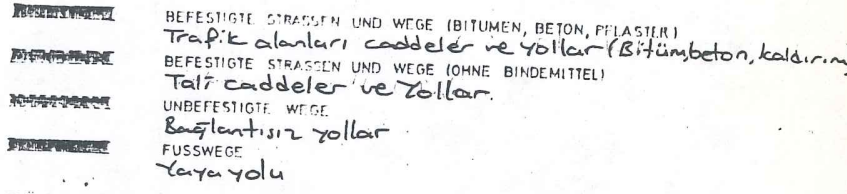 BEFESTIGTE STRASSEN UND WEGE (BITUMEN, BETON, PFLASTER)
Trafik alanları caddeler ve yollar (Bitüm, beton, kaldırım
BEFESTIGTE STRASSEN UND WEGE (OHNE BINDEMITTEL)
Tali caddeler ve Yollar.
UNBEFESTIGTE WEGE
Bağlantısız yollar
FUSSWEGE
Yaya yolu